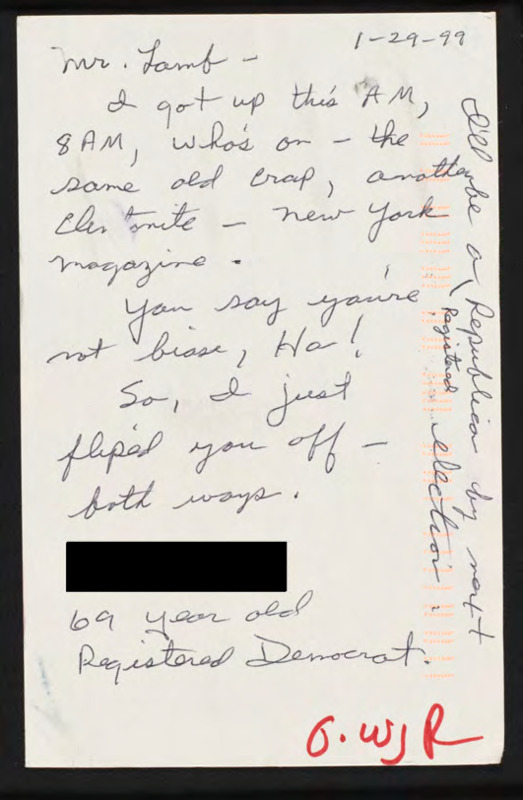 1-29-99
Mr. Lamb -
I got up this AM,
8 AM, who's on - the
same old crap, another
Clintonite - New York
magazine.
You say you're
not biase, Ha!
So, I just
fliped you off -
both ways.
69 year old
Registered Democrat.
I'll be a Registered Republican by next
election.